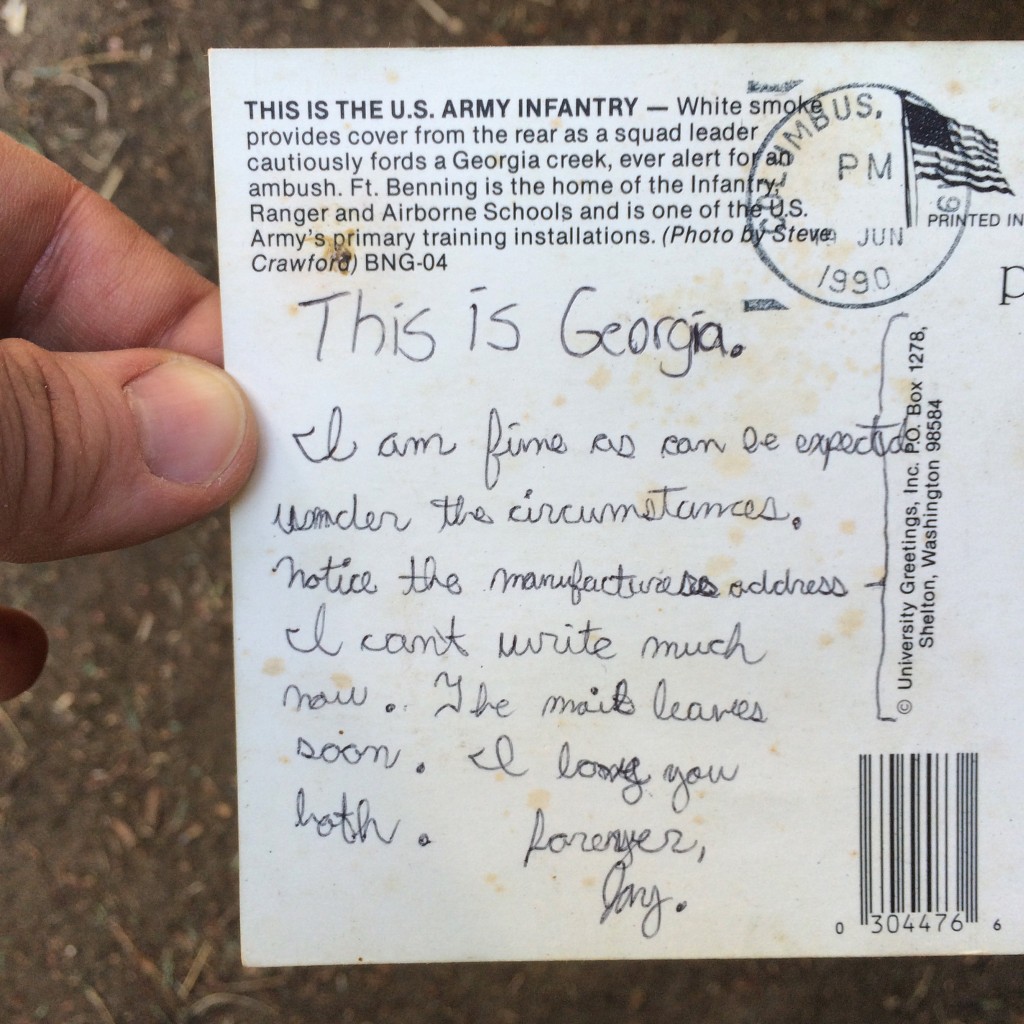 THIS IS THE U.S. ARMY INFANTRY — White smoke
provides cover from the rear as a squad leader
cautiously fords a Georgia creek, ever alert for an
ambush. Ft. Benning is the home of the Infantry,
Ranger and Airborne Schools and is one of the U.S.
Army's primary training installations. (Photo by Steve
Crawford) BNG-04
COLUMBUS,
PM
JUN
1990
PRINTED IN
This is Georgia.
I am fine as can be expected
under the circumstances.
Notice the manufacturers address -
I can't write much
now. The mail leaves
soon. I love you
both. Forever,
Jay.
© University Greetings, Inc. P.O. Box 1278,
Shelton, Washington 98584
0 304476 6